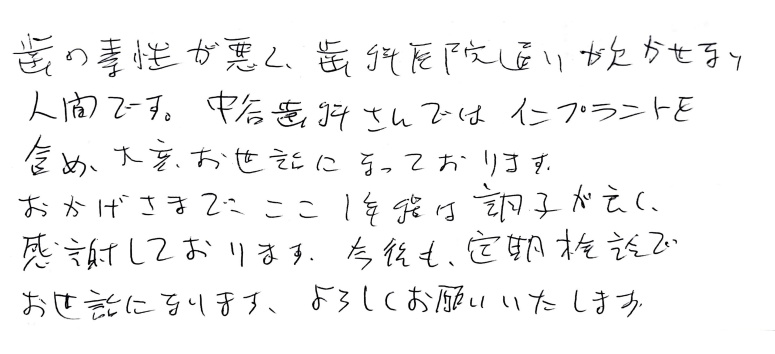 歯の素性が悪く、歯科医院通いが欠かせない
人間です。中谷歯科さんではインプラントを
含め、大変お世話になっております。
おかげさまでここ1年程は調子が良く、
感謝しております。今後も、定期検診で
お世話になります、よろしくお願いいたします